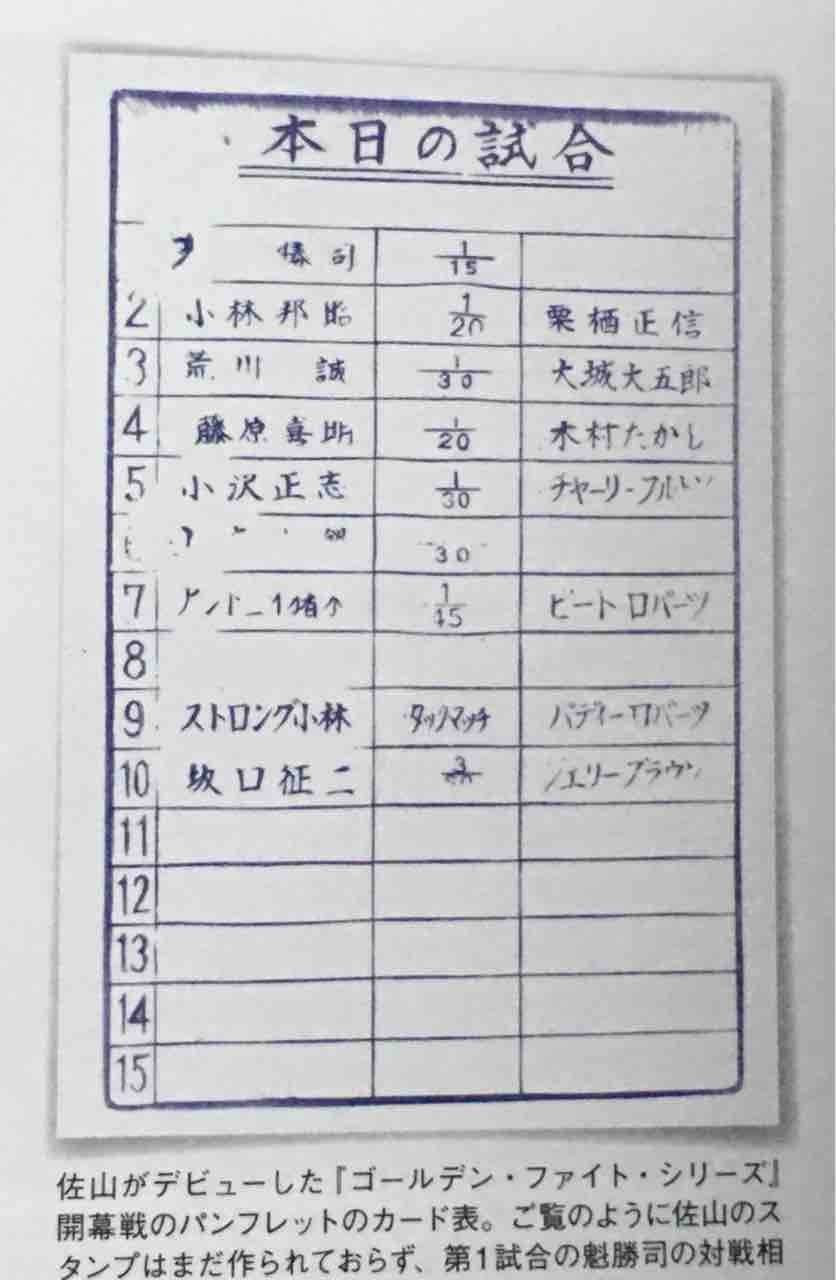 本日の試合
勝司 1/15
2 小林邦昭 1/20 栗栖正信
3 荒川 誠 1/30 大城大五郎
4 藤原喜明 1/20 木村たかし
5 小沢正志 1/30 チャーリー
30
7 アントニオ猪木 1/45 ピートロバーツ
8
9 ストロング小林 タッグマッチ パディーロバーツ
10 坂口征二 3 ジェリーブラウン
11
12
13
14
15
佐山がデビューした『ゴールデン・ファイト・シリーズ』
開幕戦のパンフレットのカード表。ご覧のように佐山のス
タンプはまだ作られておらず、第1試合の魁勝司の対戦相